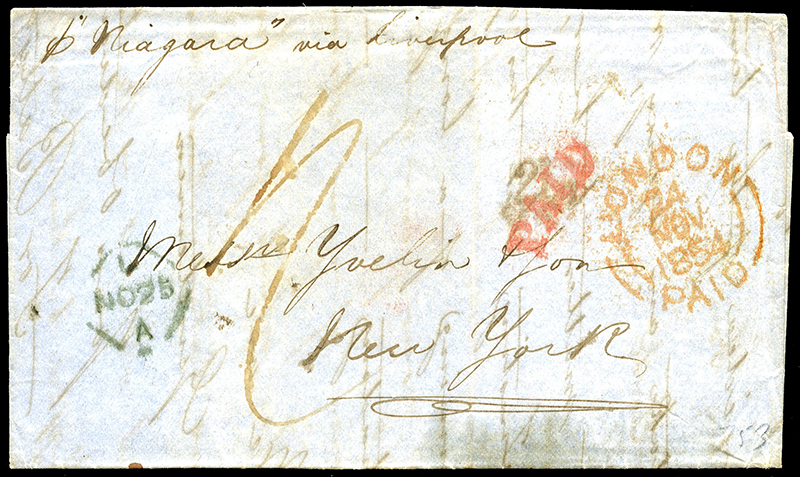 p "Niagara" via Liverpool
PAID
LONDON
NOV
185
PAID
NO 25
A
Messrs Yvelin & Son
New York
53